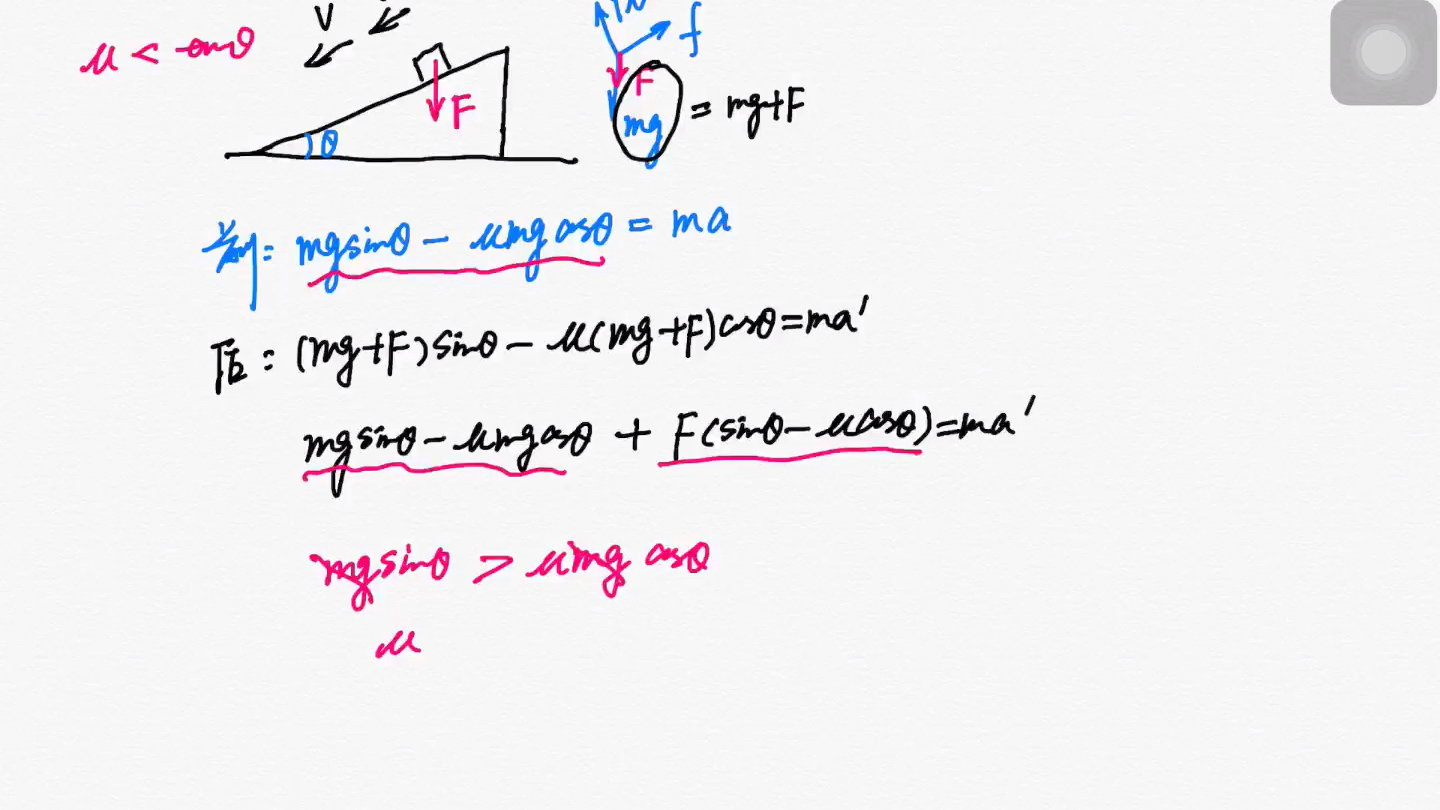 μ < tanθ
V
N
f
F
F
θ
mg = mg+F
前: mgsinθ - μmgcosθ = ma
后: (mg+F)sinθ - μ(mg+F)cosθ=ma'
mgsinθ - μmgcosθ + F(sinθ-μcosθ)=ma'
mgsinθ > μmgcosθ
μ